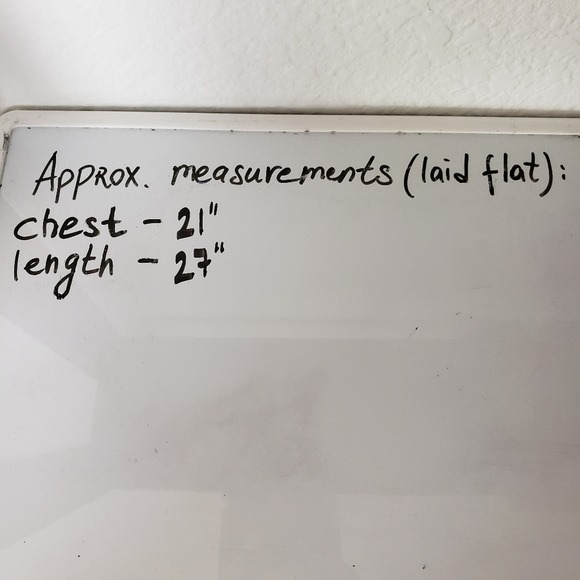 Approx. measurements (laid flat):
chest - 21"
length - 27"